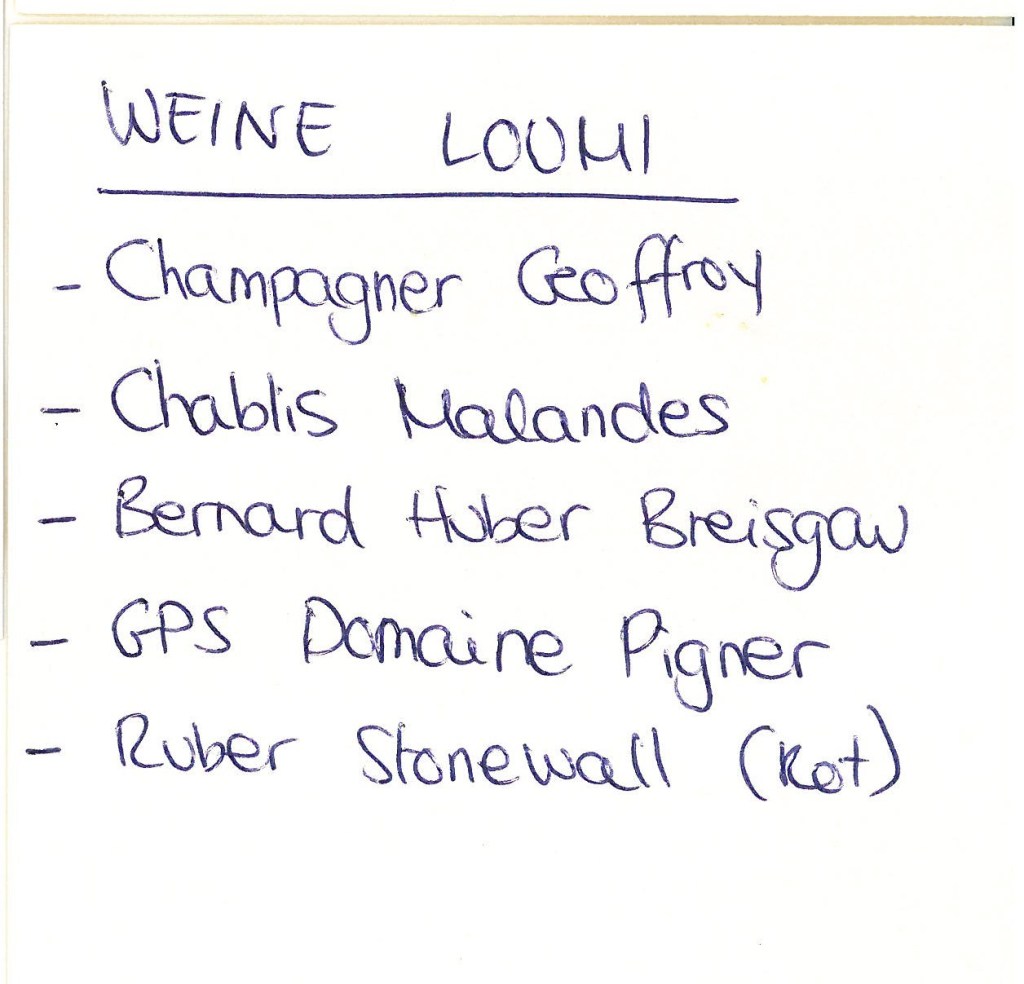 WEINE LOUMI
- Champagner Geoffroy
- Chablis Malandes
- Bernard Huber Breisgau
- GPS Domaine Pigner
- Ruber Stonewall (Rot)